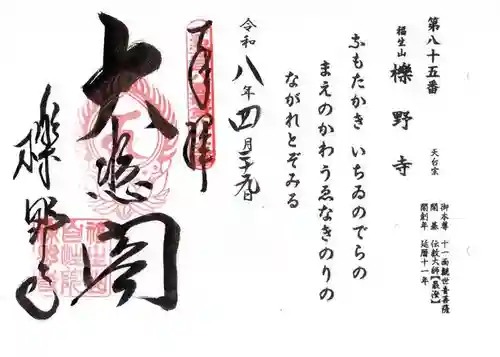 第八十五番
福生山
櫟野寺
天台宗
御本尊 十一面観世音菩薩
開基 伝教大師【最澄】
開創年 延暦十一年
ふもたかき いちゐのでらの
まえのかわうゑなきのりの
ながれとぞみる
令和八年四月二十九日
奉拝
大悲閣
櫟野寺